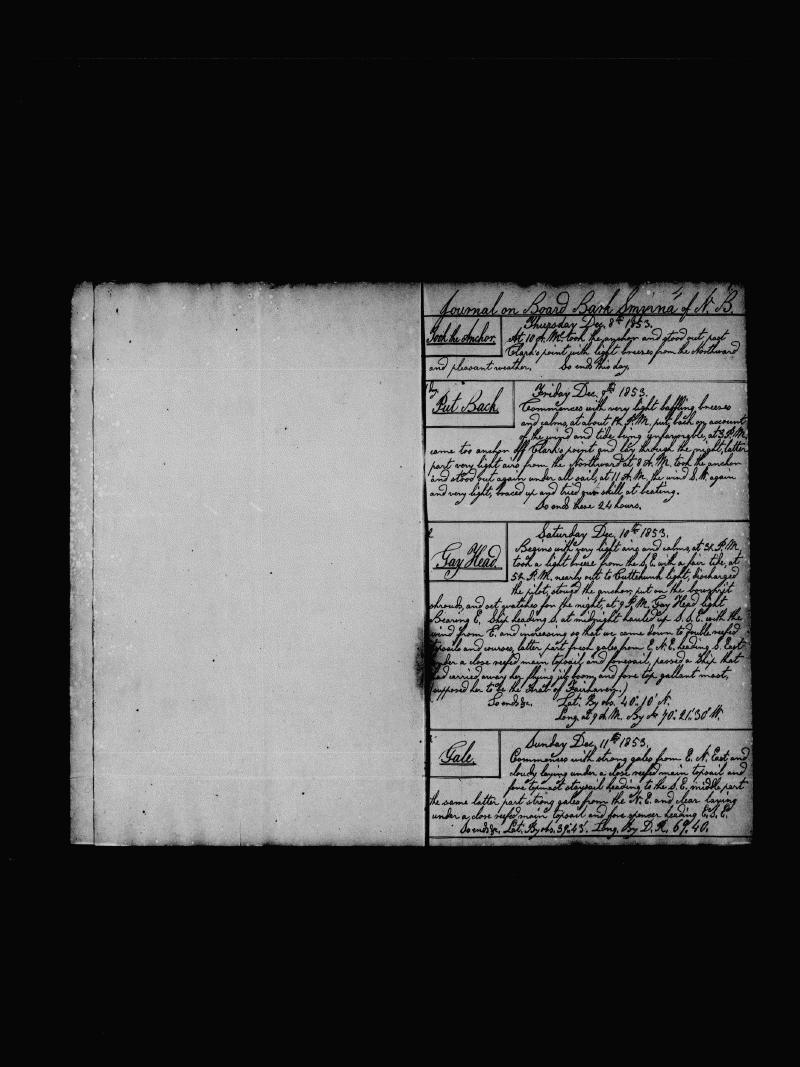 Journal on Board Bark Smyrna of N. B.
Thursday Dec. 8th 1853.
Took the Anchor.
At 10 A.M. took the anchor and stood out past
Clark's point with light breezes from the Northward
and pleasant weather. So ends this day.
Friday Dec. 9th 1853.
Put Back
Commences with very light baffling breezes
and calms, at about 1½ P.M. put back on account
of the wind and tide being unfavorable, at 3 P.M.
came too anchor off Clark's point and lay through the night, latter
part very light airs from the Northward at 8 A.M. took the anchor
and stood out again under all sail, at 11 A.M. the wind S.W. again
and very light, braced up and tried our skill at beating.
So ends these 24 hours.
Saturday Dec. 10th 1853.
Gay Head
Begins with very light airs and calms, at 3½ P.M.
took a light breeze from the S.E. with a fair tide, at
5½ P.M. nearly out to Cuttehunk light, discharged
the pilot, stowed the anchor, put on the bowsprit
shrouds, and set watches for the night, at 9 P.M. Gay Head light
Bearing E. Ship heading S. at midnight hauled up S.S.E. with the
wind from E. and increasing so that we came down to double reefed
topsails and courses, latter part fresh gales from E.N.E. heading S. East
under a close reefed main topsail and foresail, passed a Ship that
had carried away her flying jib boom, and fore top gallant mast,
(supposed her to be the Arab of Fairhaven.)
So ends &c. Lat. By obs. 40°.10' N.
Long. at 9 A.M. By do 70°.21'.30" W.
Sunday Dec. 11th 1853.
Gale.
Commences with strong gales from E. N. East and
cloudy laying under a close reefed main topsail and
fore topmast staysail heading to the S.E. middle part
the same latter part strong gales from the N.E. and clear laying
under a close reefed main topsail and fore spencer heading E.S.E.
So ends &c. Lat. By obs. 39°.43'. Long. By D.R. 69°.40.